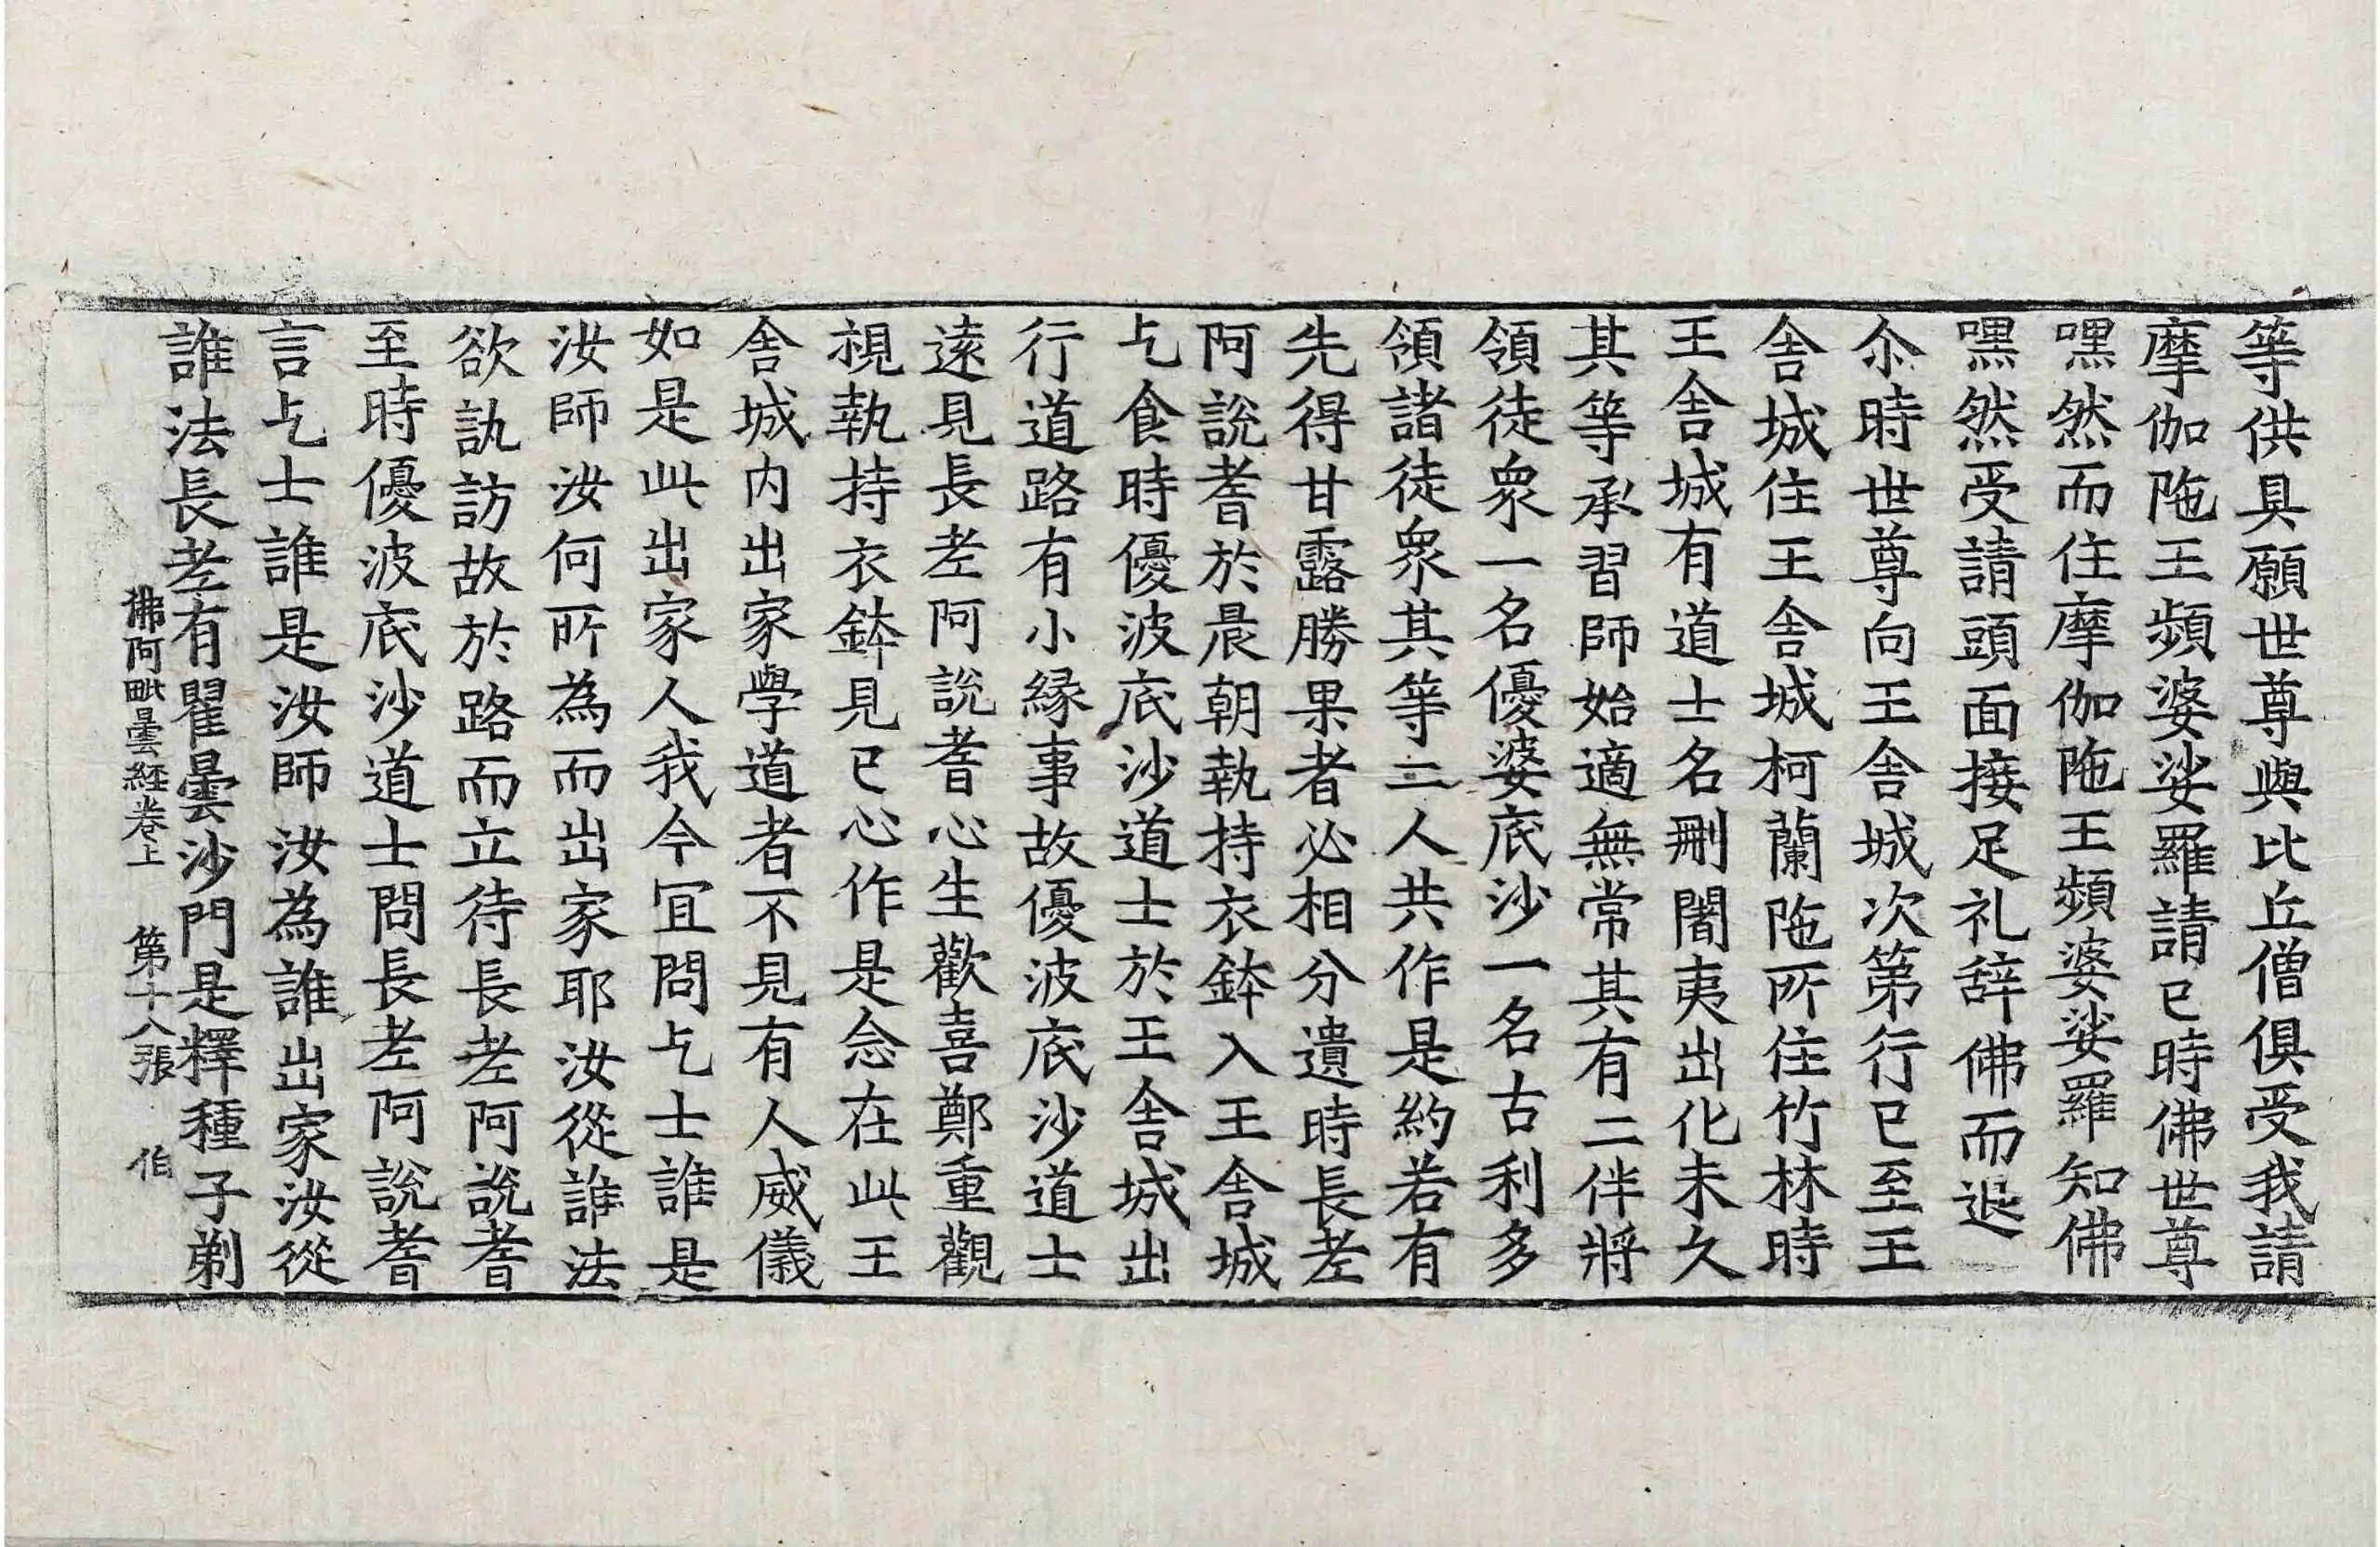 等供具願世尊與比丘僧俱受我請
摩伽陁王頻婆娑羅請已時佛世尊
嘿然而住摩伽陁王頻婆娑羅知佛
嘿然受請頭面接足礼辞佛而退
尒時世尊向王舍城次第行已至王
舍城住王舍城柯蘭陁所住竹林時
王舍城有道士名刪闍夷出化未久
其等承習師始適無常其有二伴將
領徒衆一名優婆底沙一名古利多
領諸徒衆其等二人共作是約若有
先得甘露勝果者必相分遺時長老
阿說耆於晨朝執持衣鉢入王舍城
乞食時優波底沙道士於王舍城出
行道路有小緣事故優波底沙道士
遠見長老阿說耆心生歡喜鄭重觀
視執持衣鉢見已心作是念在此王
舍城内出家學道者不見有人威儀
如是此出家人我今冝問乞士誰是
汝師汝何所為而出家耶汝從誰法
欲訊訪故於路而立待長老阿說耆
至時優波底沙道士問長老阿說耆
言乞士誰是汝師汝為誰出家汝從
誰法長老有瞿曇沙門是釋種子剃
佛阿毗曇經卷上 第十八張 伯